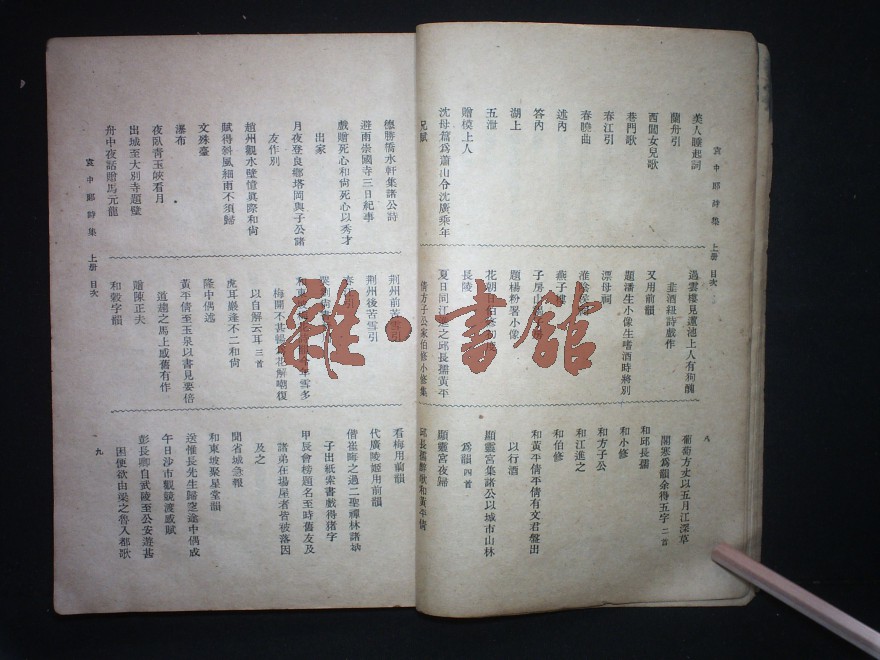 袁中郎詩集 上册 目次
八
美人睡起詞
蘭舟引
西閶女兒歌
巷門歌
春江引
春曉曲
述內
答內
湖上
五泄
贈模上人
沈母篇為蕭山令沈廣乘年
兄賦
過雲樓見蓮池上人有狗醜
韭酒紐詩戲作
又用前韻
題潘生小像生嗜酒時將別
漂母祠
燕子樓
子房山
題楊粉署小像
花朝
長陵
夏日同江進之邱長孺黃平
倩方子公家伯修小修集
葡萄方丈以五月江深草
閣寒為韻余得五字 二首
和邱長孺
和小修
和方子公
和江進之
和伯修
和黃平倩平倩有文君盤出
以行酒
顯靈宮集諸公以城市山林
為韻 四首
顯靈宮夜歸
邱長孺醉歌和黃平倩
德勝橋水軒集諸公詩
避雨崇國寺三日紀事
戲贈死心和尚死心以秀才
出家
月夜登良鄉塔岡與子公諸
友作別
趙州觀水壁憶真際和尚
賦得斜風細雨不須歸
文殊臺
瀑布
夜臥青玉峽看月
出城至大別寺題壁
舟中夜話贈馬元龍
荆州前苦雪引
荆州後苦雪引
雪多
梅開不甚暢為花解嘲復
以自解云耳 三首
虎耳巖逢不二和尚
隆中偶述
黃平倩至玉泉以書見要倍
道趨之馬上感舊有作
贈陳正夫
和穀字韻
看梅用前韻
代廣陵姬用前韻
偕崔晦之過二聖禪林諸衲
子出紙索書戲得猪字
甲辰會榜題名至時舊友及
諸弟在場屋者皆被落因
及之
聞省城急報
和東坡聚星堂韻
送惟長先生歸窆途中偶成
午日沙市觀競渡感賦
彭長卿自武陵至公安遊甚
困便欲由梁之魯入都歌
袁中郎詩集 上册 目次
九
雜·書館